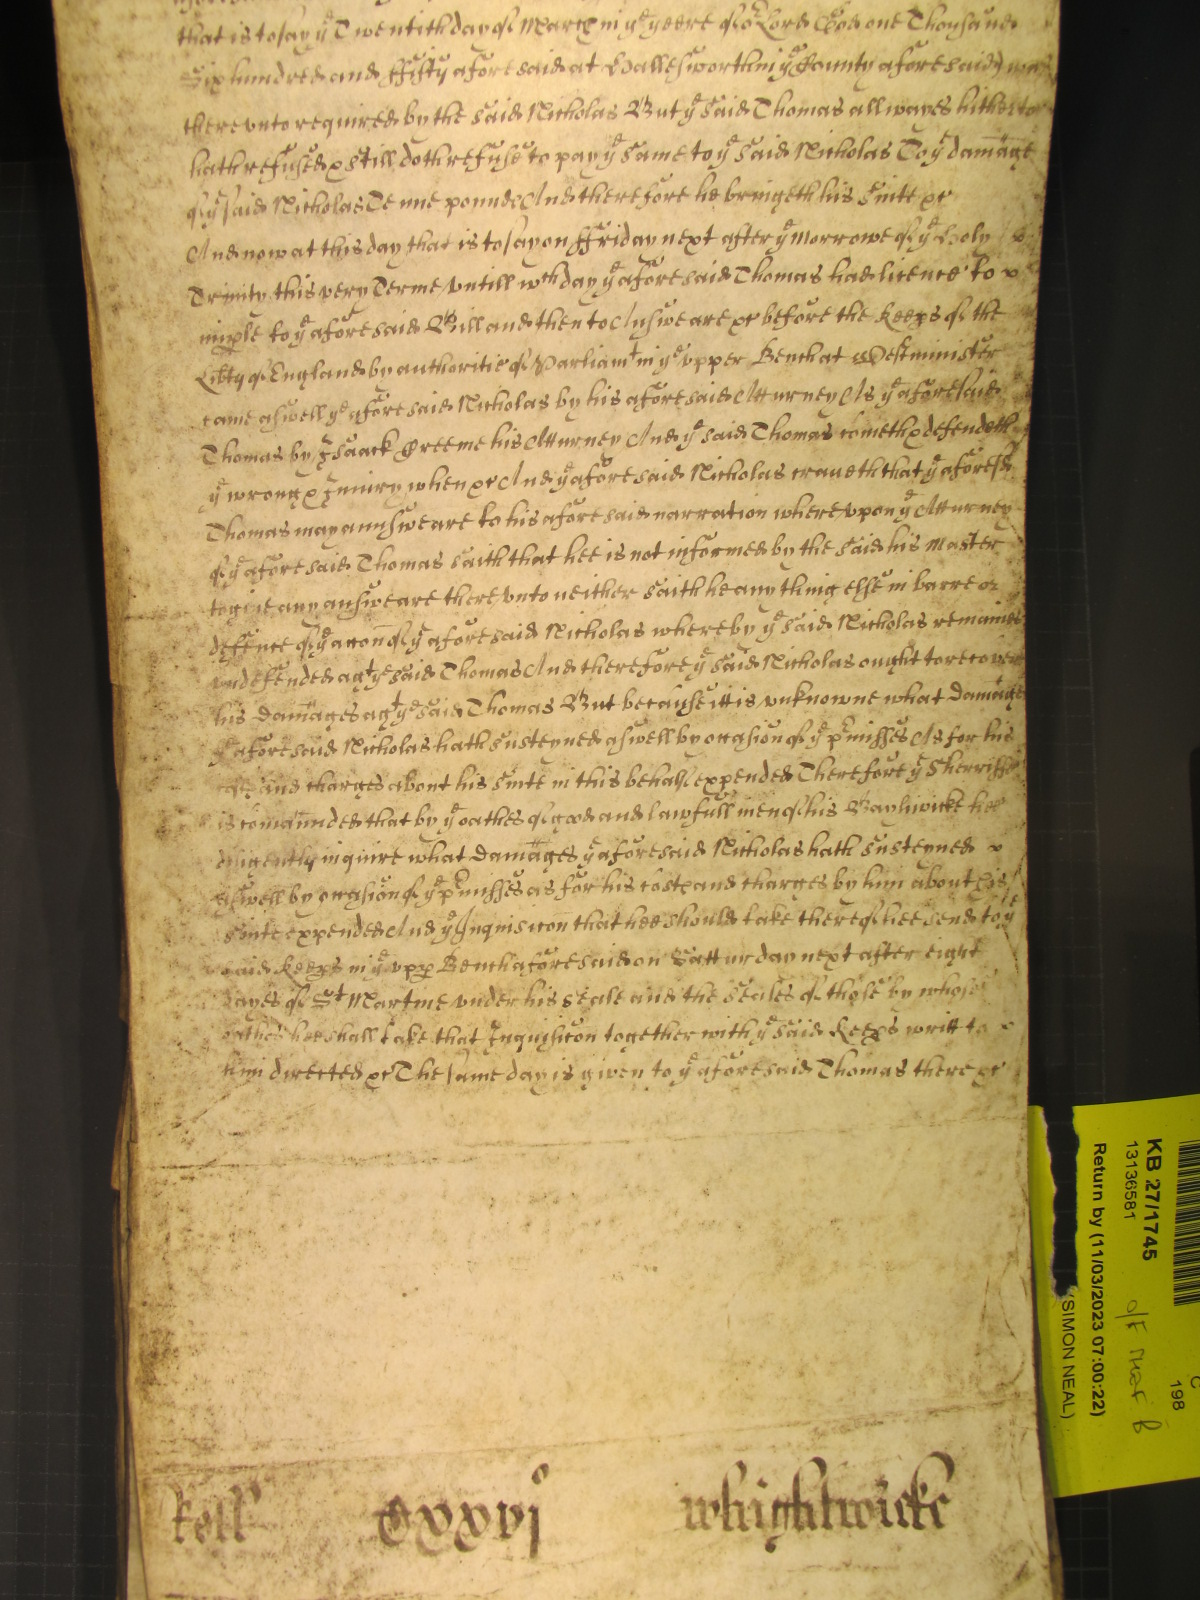 that is to say ye Twentith day of March in ye yeere of or Lord God one Thousand
Six hundred and ffifty aforesaid at Hallesworth in ye County aforesaid) was
therevnto required by the said Nicholas But ye said Thomas all wayes hitherto
hath refused & still doth refuse to pay ye same to ye said Nicholas To ye damage
of ye said Nicholas Tenne pounds And therefore he bringeth his suite &c
And now at this day that is to say on ffriday next after ye Morrowe of ye Holy
Trinity this very Terme vntill wch day ye aforesaid Thomas had licence to
imple to ye aforesaid Bill and then to Answeare &c before the Keeps of the
Libty of England by authoritie of Parliamt in ye vpper Bench at Westminister
came aswell ye aforesaid Nicholas by his aforesaid Atturney As ye aforesaid
Thomas by Isaack Greeme his Atturney And ye said Thomas cometh & defendeth
ye wrong & Iniury when &c And ye aforesaid Nicholas craueth that ye aforesd
Thomas may annsweare to his aforesaid narration wherevpon ye Atturney
of ye aforesaid Thomas saith that hee is not informed by the said his Master
to giue any answeare therevnto neither saith he any thing else in barre or
deffence of ye accon of ye aforesaid Nicholas whereby ye said Nicholas remaines
vndefended agt ye said Thomas And therefore ye said Nicholas ought to recover
his Damages agt ye said Thomas But because itt is vnknowne what Damages
ye aforesaid Nicholas hath susteyned aswell by occasion of ye pmisses As for his
costs and charges about his suite in this behalf expended Therefore ye Sherriffe
is comaunded that by ye oathes of good and lawfull men of his Bayliwicke hee
diligently inquire what Damages ye aforesaid Nicholas hath susteyned
aswell by occasion of ye pmisses as for his costs and charges by him about his
suite expended And ye Inquisicon that hee should take thereof hee send to ye
said Keeps in ye vpp Bench aforesaid on Satturday next after eight
dayes of St Martine vnder his seale and the seales of those by whose
oathes hee shall take that Inquisicon together with ye said Keeps writt to
him directed &c The same day is given to ye aforesaid Thomas there &c
Roll cxxvjo whightwicke
KB 27/1745
13136581
Return by (11/03/2023 07:00:22)
(SIMON NEAL)
198
C